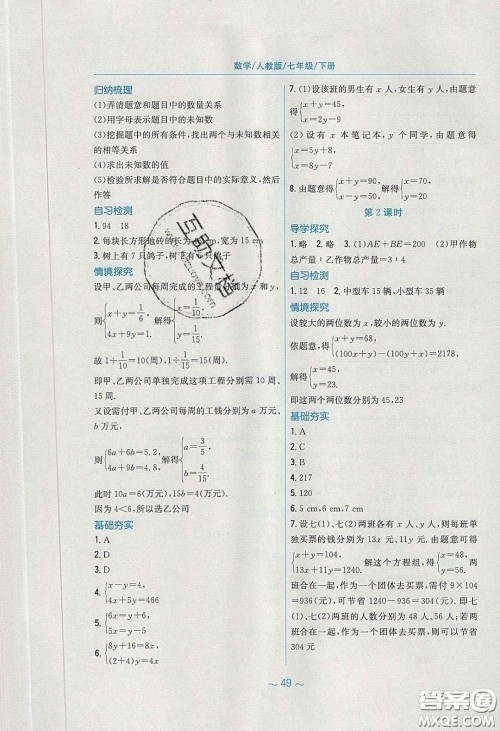 数学/人教版/七年级/下册
归纳梳理
(1)弄清题意和题目中的数量关系
(2)用字母表示题目中的未知数
(3)挖掘题中的所有条件,找出两个与未知数相关的相等关系
(4)求出未知数的值
(5)检验所求解是否符合题目中的实际意义,然后作答
自习检测
1. 94 18
2. 每块长方形地砖的长为 宽为 15 cm
3. 树上有 7 只鸽子,树下有 5 只鸽子
情境探究
设甲、乙两公司每周完成的工程量分别为 x 和 y,
则{x+y=1/6, 4x+9y=1. 解得{x=1/10, y=1/15.
故 1÷1/10=10(周),1÷1/15=15(周).
即甲、乙两公司单独完成这项工程分别需 10 周、
15 周.
又设需付甲、乙两公司每周的工钱分别为 a 万元,
b 万元,
则{6a+6b=5.2, 4a+9b=4.8. 解得{a=3/5, b=4/15.
此时 10a=6(万元),15b=4(万元).
因为 4<6,所以选乙公司
基础夯实
1. A
2. D
3. D
4. {x-y=4, 4x+5y=466
5. {6x=y+6, 5x=y-5
6. {8y+16=8x, (2+4)y=4x
7. (1)设该班的男生有 x 人,女生有 y 人,由题意
得{x+y=45, x=2y-9
(2)设有 x 本笔记本,y 个同学,由题意得
{x=5y+8, x=8y-7
8. 由题意得{x+y=90, x=y+50 解得{x=70, y=20
第 2 课时
导学探究
1. 略 2. 略 3. (1)AE+BE=200 (2)甲作物
总产量:乙作物总产量=3:4
自习检测
1. 12 16 2. 中型车 15 辆,小型车 35 辆
情境探究
设较大的两位数为 x,较小的两位数为 y.
依题意,得{x+y=68, (100x+y)-(100y+x)=2178,
解得{x=45, y=23
即这两个两位数分别为 45,23
基础夯实
1. A
2. C
3. B
4. 217
5. 120
6. 5 cm,6 cm,7 cm
7. 设七(1)、七(2)两班各有 x 人、y 人,则每班单
独买票的钱分别为 13x 元、11y 元. 由题意可得
{x+y=104, 13x+11y=1240. 解这个方程组,得{x=48, y=56. 若两
班合在一起,作为一个团体去买票,需付 9×104
=936(元),可节省 1240-936=304(元). 即七
(1)、七(2)两班的人数分别为 48 人、56 人;若两
班合在一起,作为一个团体去买票,可以节省
304 元
～ 49 ～
互联文档
答案圈
MXQE.COM